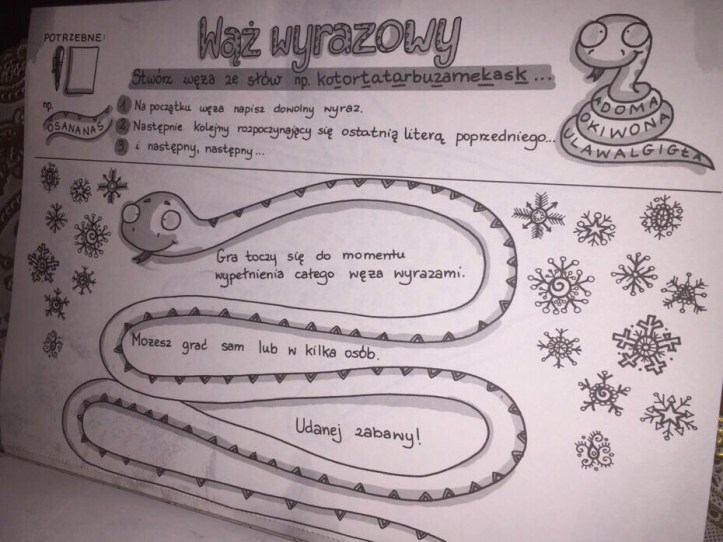 POTRZEBNE:
Wąż wyrazowy
Stwórz węża ze słów np. kotortatarbuzamekask...
np.
OSANANAS
1 Na początku węża napisz dowolny wyraz.
2 Następnie kolejny rozpoczynający się ostatnią literą poprzedniego...
3 i następny, następny...
ADOMA
OKIWONA
ULAWALGIGŁA
Gra toczy się do momentu
wypełnienia całego węża wyrazami.
Możesz grać sam lub w kilka osób.
Udanej zabawy!